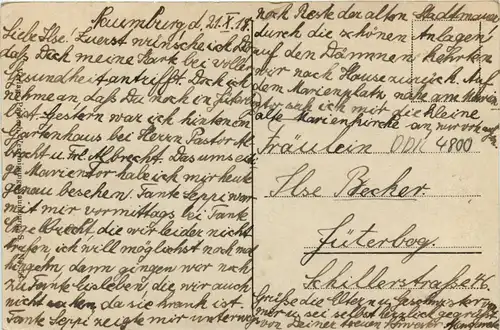 Naumburg, d. 21.X.18.
Liebe Ilse. Zuerst wünsche ich Dir
daß Dich meine Karte bei voller
Gesundheit antrifft. Doch ich
nehme an, daß Du noch in Jüter
bist. Gestern war ich hinten im
Gartenhaus bei Herrn Pastor Al
brecht u. Frl. Albrecht. Das
ge Marientor habe ich mir heute
genau besehen. Tante Seppi war
mit mir vormittags bei Tante
Engelbrecht die wir leider nicht
trafen, ich will möglichst noch mal
hingehn, dann gingen wir noch
zu Tante Eisleben, die wir auch
nicht da sie krank ist.
Tante Seppi zeigte mir unterweg
noch Reste der alten Stadtmauer
durch die schönen Anlagen
auf den Dämmen kehrten
wir nach Hause zurück. Auf
dem Marienplatz nahe am Marien
tor sah ich mir die kleine
alte Marienkirche an, nur von
Fräulein ODK 4800
Ilse Becker.
Jüterbog.
Schillerstraße 26.
Grüße die Eltern u. Geschwister
sei selbst herzlich gegrüßt
von Deiner treuen